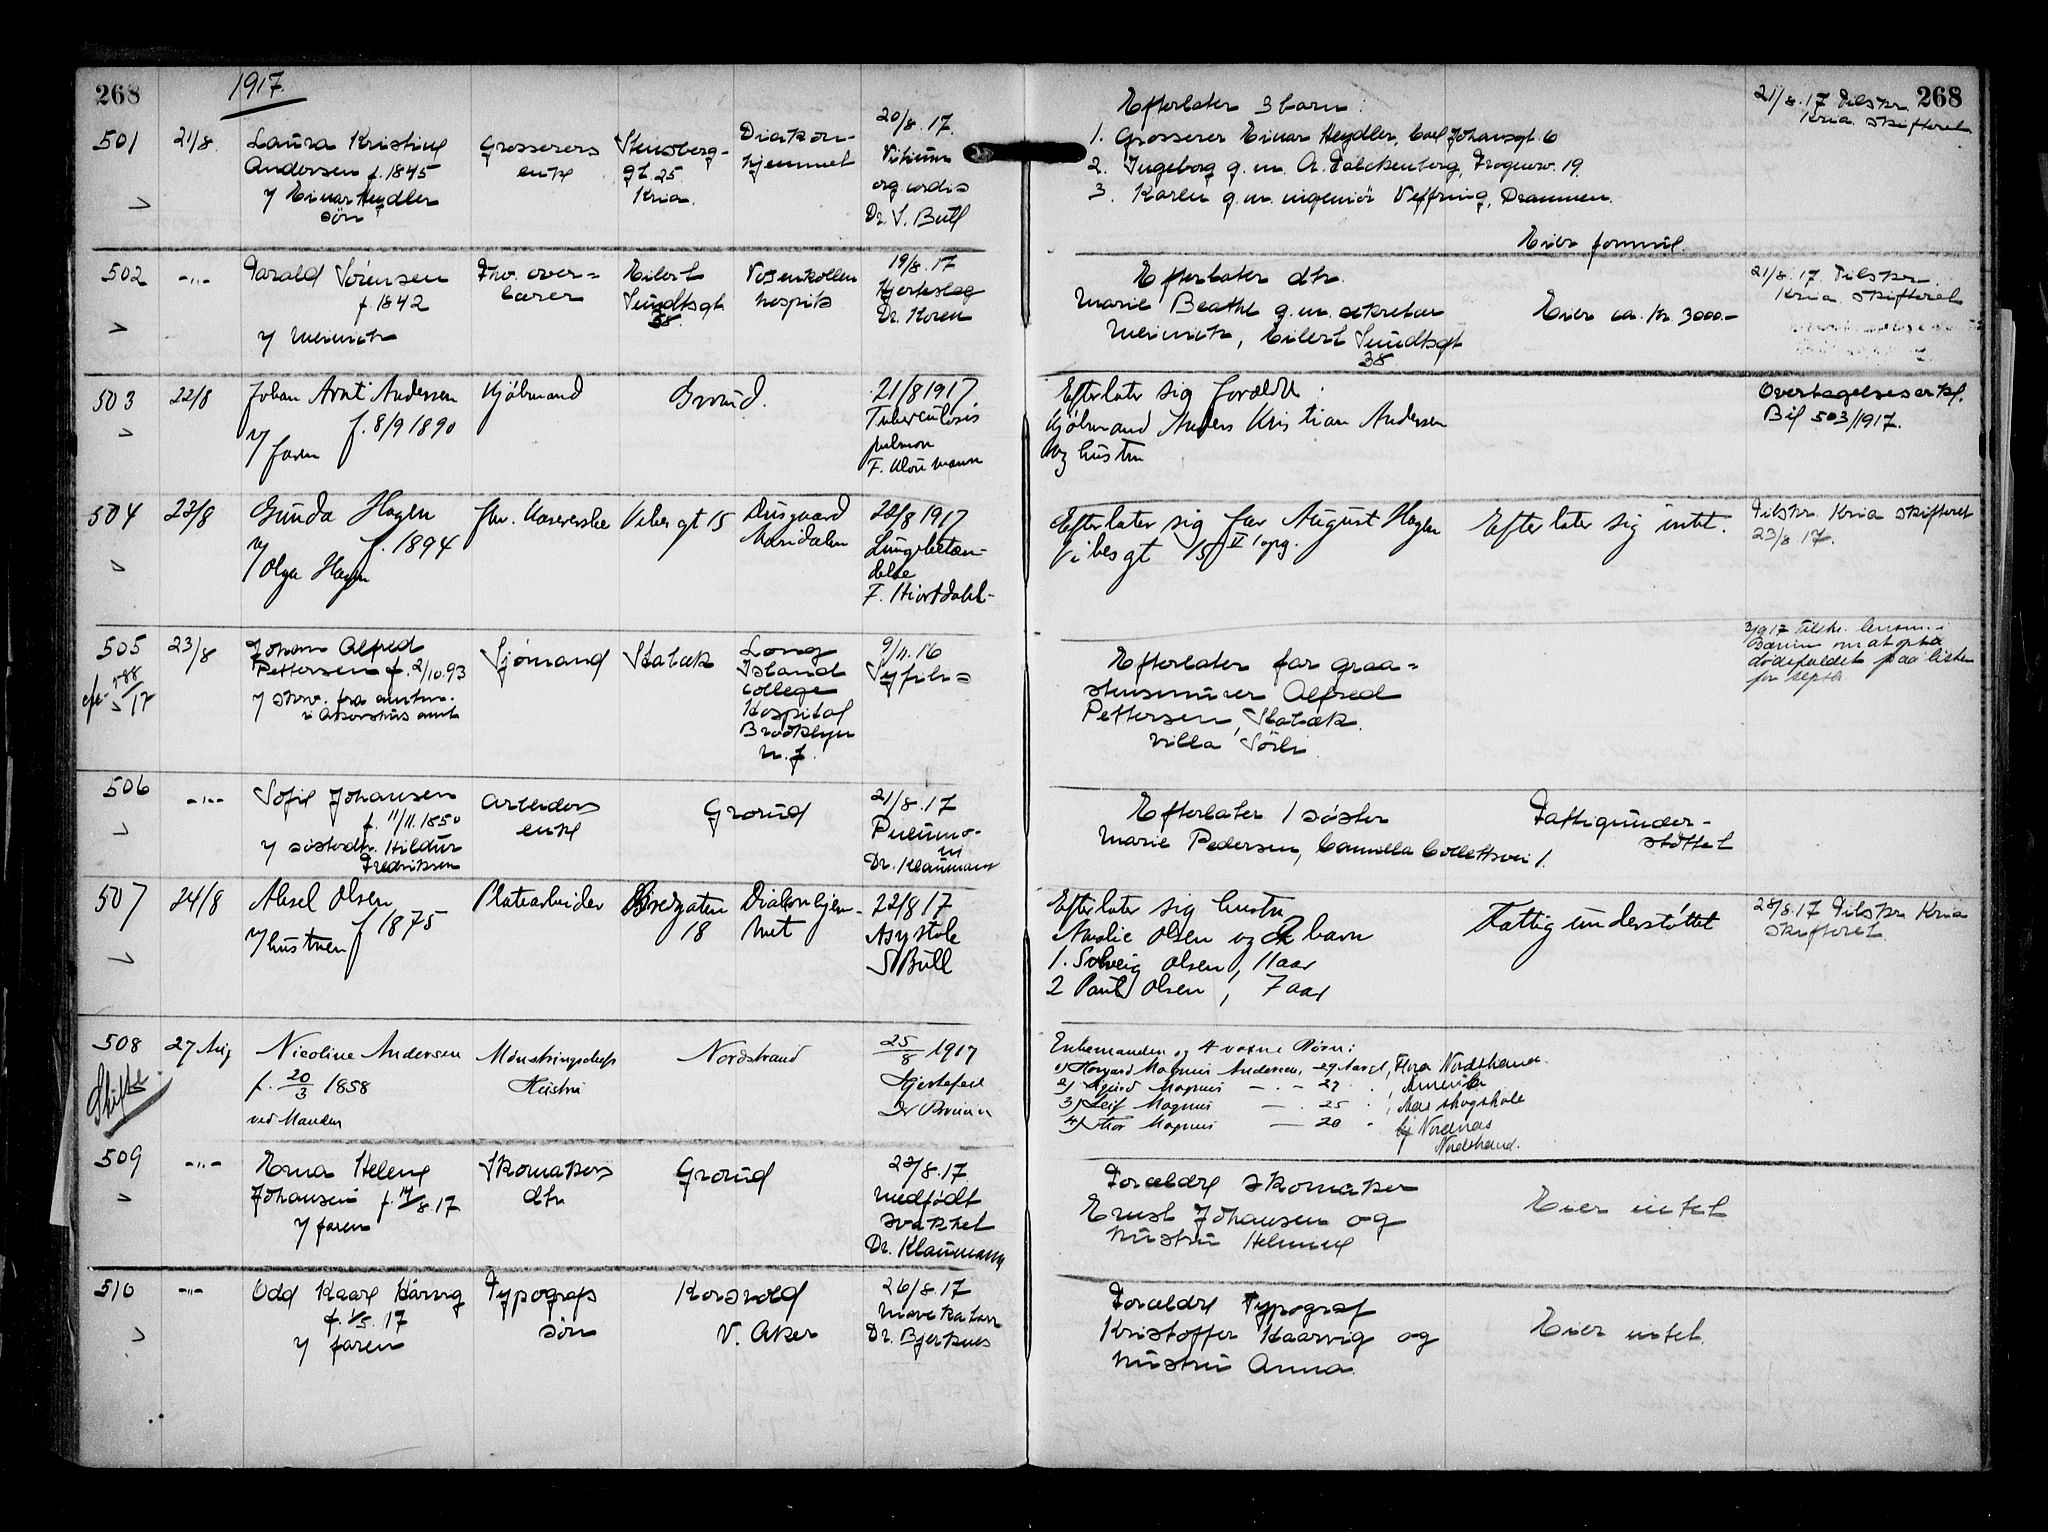 268
1917.
268
501
21/8.
Laura Kristine
Andersen f. 1845
v/ Einar Heydler
sön
Grosserers
enke
Stensberg-
gt. 25
Kria.
Diakon-
hjemmet
20/8.17.
Vitium
org. cordis
Dr. S. Bull
Efterlater 3 barn:
1. Grosserer Einar Heydler, Carl Johansgt. 6
2. Ingeborg g.m. A. Falckenberg, Frognerv. 19
3. Karen g.m. ingeniör Veffring, Drammen.
Eier formue.
21/8.17 Tilskr.
Kria. skifteret
502
-"-
Tarald Sörensen
f. 1842
v/ Meinich
Fhv. over-
lærer
Eilert
Sundtsgt
38.
Vosenkollen
hospits
19/8.17
Hjerteslag
Dr. Koren
Efterlater dtr.
Marie Beathe g.m. sekretær
Meinich, Eilert Sundtsgt
38
Eier ca. Kr. 3000.-
21/8.17. Tilskr.
Kria. skifteret
503
22/8
Johan Arnt Andersen
f. 8/9 1890
v/ faren
Kjöbmand
Grorud.
21/8 1917
Tuberculosis
pulmon
F. Klou mann
Efterlater sig forældre:
Kjöbmand Anders Kristian Andersen
og hustru
Overtagelseserkl.
Bil 503/1917.
504
22/8
Gunda Hagen
f. 1894
v/ Olga Hagen
fhv. Vibesgt 15
Maridalen
22/8 1917
Lungebetæn-
delse
F. Hiortdahl-
Efterlater sig far August Hagen
Vibesgt 15 II opg.
Efterlater sig intet.
Tilskr. Kria skifteret
23/8.17.
505
588/17
23/8
Johan Alfred
Pettersen f. 2/10.93
v/ skriv. fra amtm.
i Akershus amt
Sjömand
Stabæk
Long
Island
College
Hospital
Brooklyn
N.J.
9/11.16
Syfilis
Efterlater far graa-
stensmurer Alfred
Pettersen, Stabæk.
villa Sörli.
3/9 17 tilskr. lensm. i
Bærum om at opta
dödsfaldet paa listen
for septbr.
506
-"-
Sofie Johansen
f. 11/11.1850
v/ sösterdtr. Hildur
Fredriksen
Arbeiders
enke
Grorud
21/8.17
Pneumo-
ni
Dr. Klaumann
Efterlater 1 söster
Marie Pedersen, Camilla Collettsvei 1.
Fattigunder-
støttet
507
24/8
Aksel Olsen
f 1875
v/ hustruen
Platearbeider
Bredgaten
18
Diakonhjem-
met
22/8 17
Asystole
S Bull
Efterlater sig hustru
Amalie Olsen og 2 barn
1. Solveig Olsen, 11 aar
2 Paul Olsen, 7 aar
Fattigunderstøttet
28/8.17 Tilskr Kria
skifteret.
508
Skifte.
27 Aug
Nicoline Andersen
f. 20/3 1858
ved Manden
Mönstringschefs
Hustru
Nordstrand
25/8 1917
Hjertefeil
Enkemanden og 4 voxne Börn:
1) Hovard Magnus Andersen, 29 Aar, Flora Nordstrand.
2) Sigurd Magnus -.- 27 , Amerika
3) Leif Magnus -. 25 , Aas skogskole
4) Thor Magnus - 20 Nordnæs
Nordstrand.
509
-"-
Erna Helene
Johansen f. 14/8.17
v/ faren
Skomakers
dtr
Grorud
23/8.17
Medfödt
svakhet
Dr. Klaumann
Forældre skomaker
Ernst Johansen og
hustru Helmine
Eier intet
510
-"-
Odd Kaare Kårvig
f. 1/5. 17
v/ faren
Typografs
sön
Korsvold
V. Aker
26/8.17
Mavekatarr
Dr. Bjerknes
Forældre Typograf
Kristoffer Kaarvig og
hustru Anna
Eier intet.